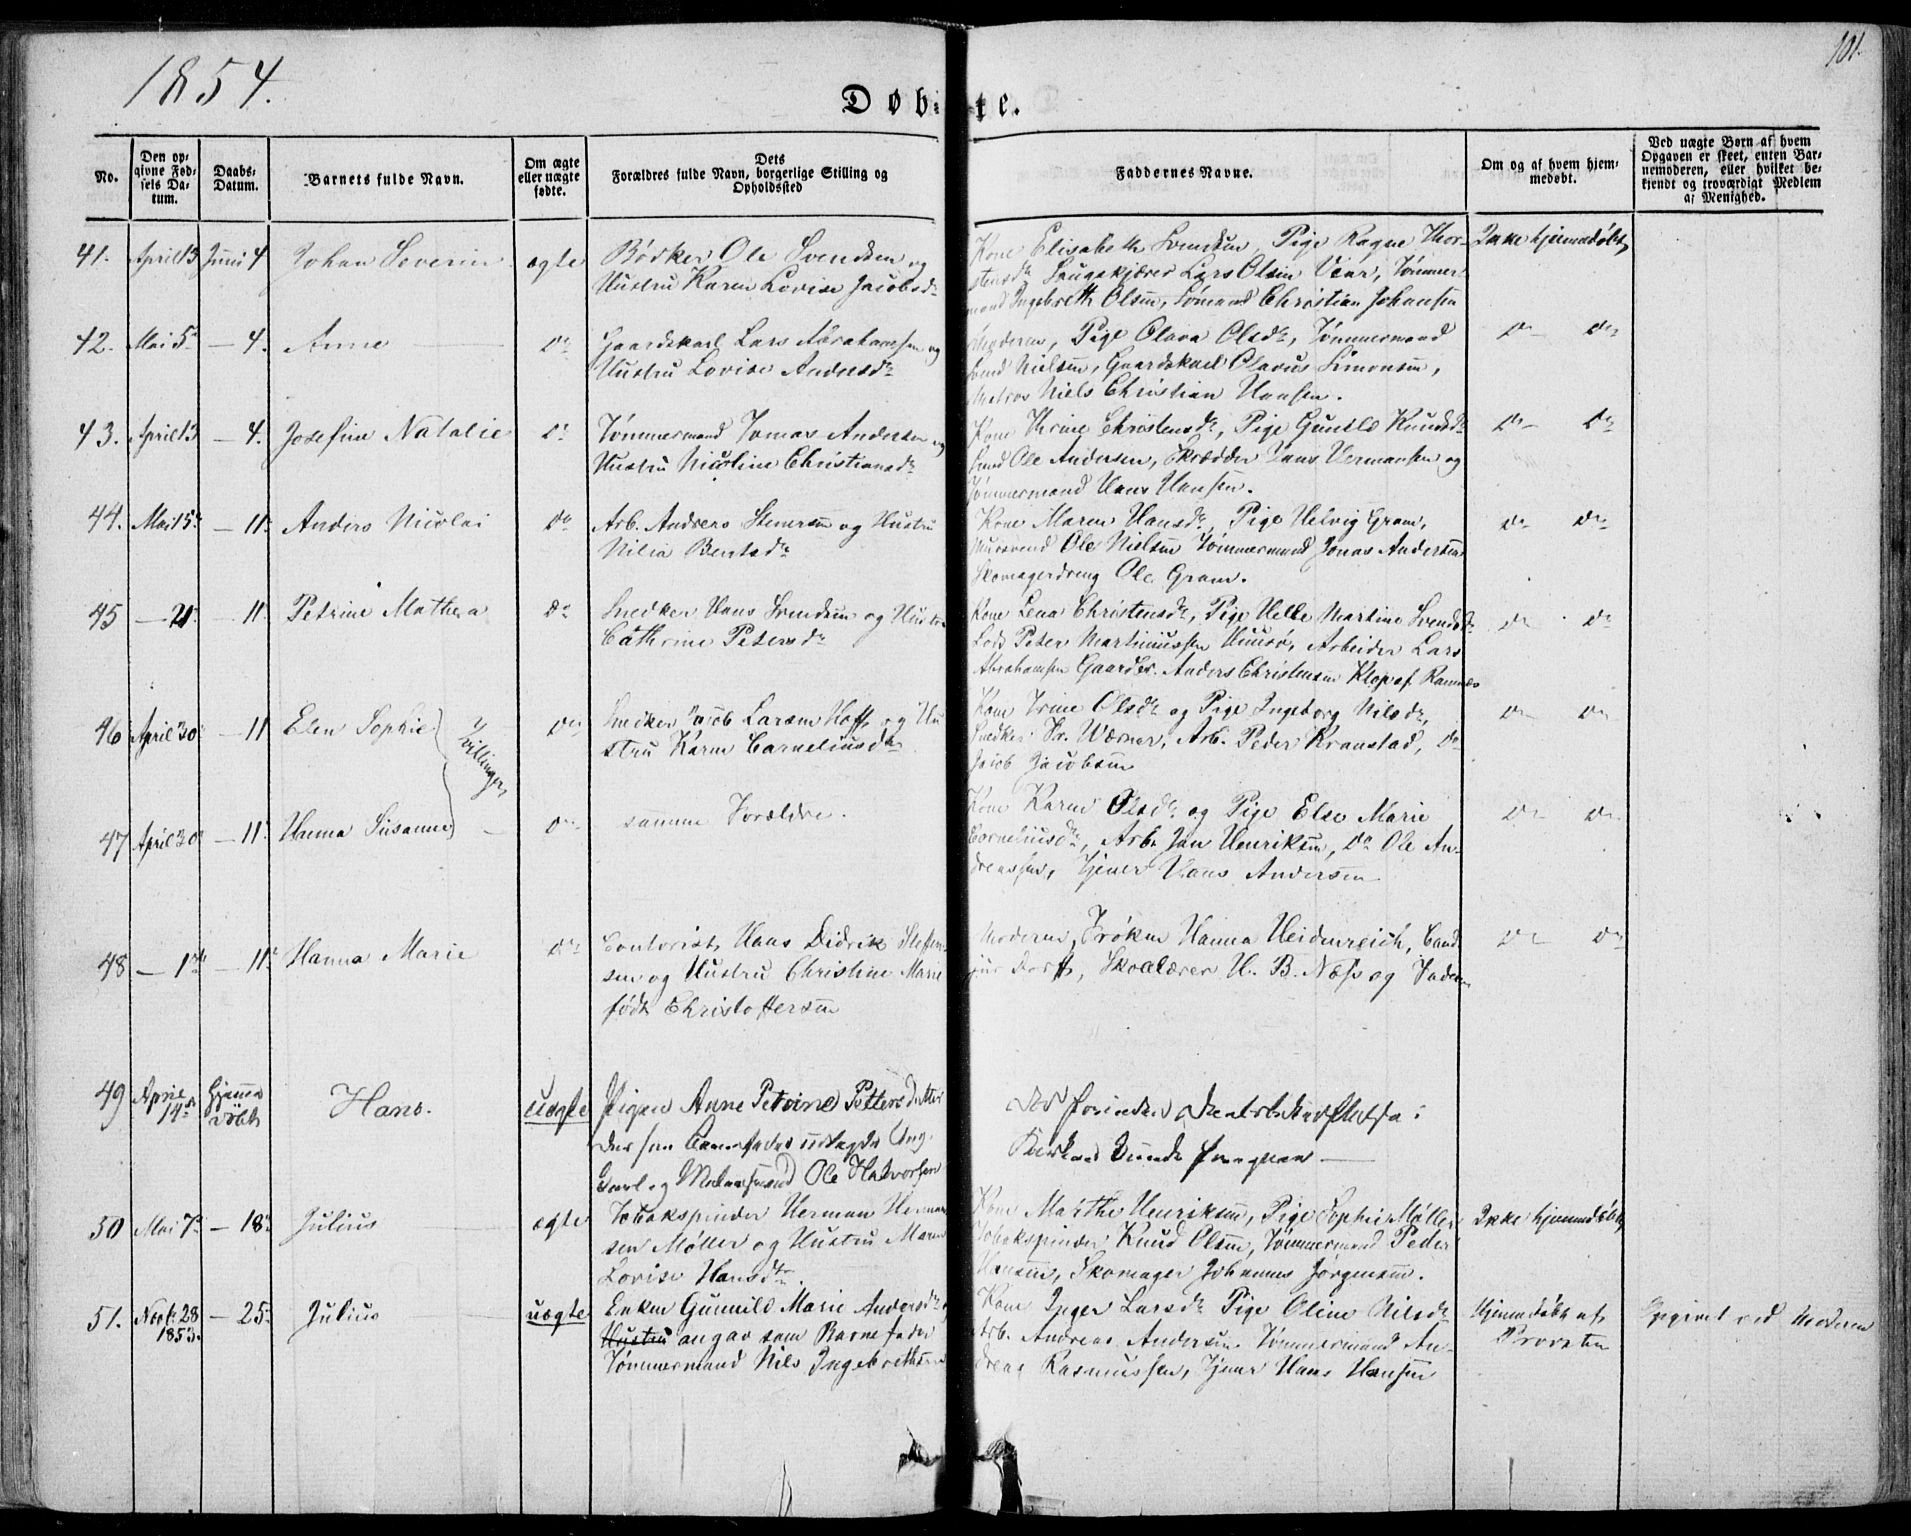 1854.
101.
Døb-te.
No.
Den op-
givne Fød-
sels Da-
tum.
Daabs-
Datum.
Barnets fulde Navn.
Om ægte
eller uægte
fødte.
Dets
Forældres fulde Navn, borgerlige Stilling og
Opholdssted
Faddernes Navne.
Om og af hvem hjem-
medøbt.
Ved uægte Børn af hvem
Opgaven er skeet, enten Bar-
nemoderen, eller hvilket be-
kjendt og troværdigt Medlem
af Menighed.
41. April 13 Juni 4 Johan Severin ægte Bødker Ole Svendsen og
Hustru Karen Lovise Jacobsdr
Kone Elisabeth Svendsen, Pige Ragne Thor-
stensdr Lars Olsen Tømmer-
mand Ingebreth Olsen, Sømand Christian Johansen
Ikke hjemmedøbt
42. Mai 5 — 4. Anne Do Gaardskarl Lars Abrahamsen og
Hustru Lovise Andersdr
Moderen, Pige Olava Olsdr, Tømmermand
Svend Nielsen, Gaardskarl Olavus Simonsen,
Matros Niels Christian Hansen.
Do Do
43. April 13 — 4. Josefine Natalie Do Tømmermand Jonas Andersen og
Hustru Nicoline Christiansdr
Kone Christensdr, Pige Gunild Knudsdr
Smed Ole Andersen, Skrædder Hermansen og
Tømmermand Hans Hansen.
Do Do
44. Mai 15 — 11. Anders Nicolai Do Arb. Andreas Stenersen og Hustru
Nilia Bentsdr
Kone Maren Hansdr, Pige Helvig Gram,
Muursvend Ole Nielsen Tømmermand Jonas Andersen
Skomagerdreng Ole Gram.
Do Do
45 — 21. — 11. Petrine Mathea Do Snedker Hans Svendsen og Hustru
Cathrine Petersdr
Kone Lena Christensdr, Pige Helle Martine Svendsdr
Lods Peter Martiniussen Huusø, Arbeider Lars
Abrahamsen Gaardbr. Anders Christensen Klop af Ramnæs
Do Do
46 April 30 — 11 Elen Sophie Do Snedker Jacob Larsen Hoff og Hu-
stru Karen Corneliusdr
Tvillinger
Kone Trine Olsdr og Pige Ingeborg Nilsdr,
Snedker Fr. Wærner, Arb. Peder Kranstad, Do
Jacob Jacobsen
Do Do
47 April 30 — 11. Hanna Susanne Do samme Forældre.
Kone Karen Olsdr og Pige Else Marie
Corneliusdr, Arb. Jan Henriksen, Do Ole An-
dreassen, Tjener Hans Andersen
Do Do
48 — 1 — 11. Hanna Marie Do Contorist Hans Didrik Steffen-
sen og Hustru Christine Marie
født Christoffersen
Moderen, Frøken Hanna Heidenreich, Cand.
jur Skolelærer H. B. Næss og Faderen
Do Do
49 April 14 Hjemme-
døbt Hans. uægte Pigen Anne Petrine Pettersdatter
der som Barnefader udlagde Ung-
karl og Ole Halvorsen
50 Mai 7 — 18. Julius ægte Tobakspinder Herman Herman-
sen Møller og Hustru Maren
Lovise Hansdtr.
Kone Marthe Henriksen, Pige Sophie Møller
Tobakspinder Knud Olsen, Tømmermand Peder
Hansen, Skomager Johannes Jørgensen.
Ikke hjemmedøbt
51. Novbr. 28
1853. — 25. Julius uægte Enken Gunnild Marie Andersdr
Hustru angav som Barnefader
Tømmermand Nils Ingebrethsen
Kone Inger Larsdr Pige Oline Nilsdr
Arb. Andreas Andersen Tømmermand An-
dreas Rasmussen, Tjener Hans Hansen
Hjemmedøbt af
Provsten
Opgivet ved Moderen